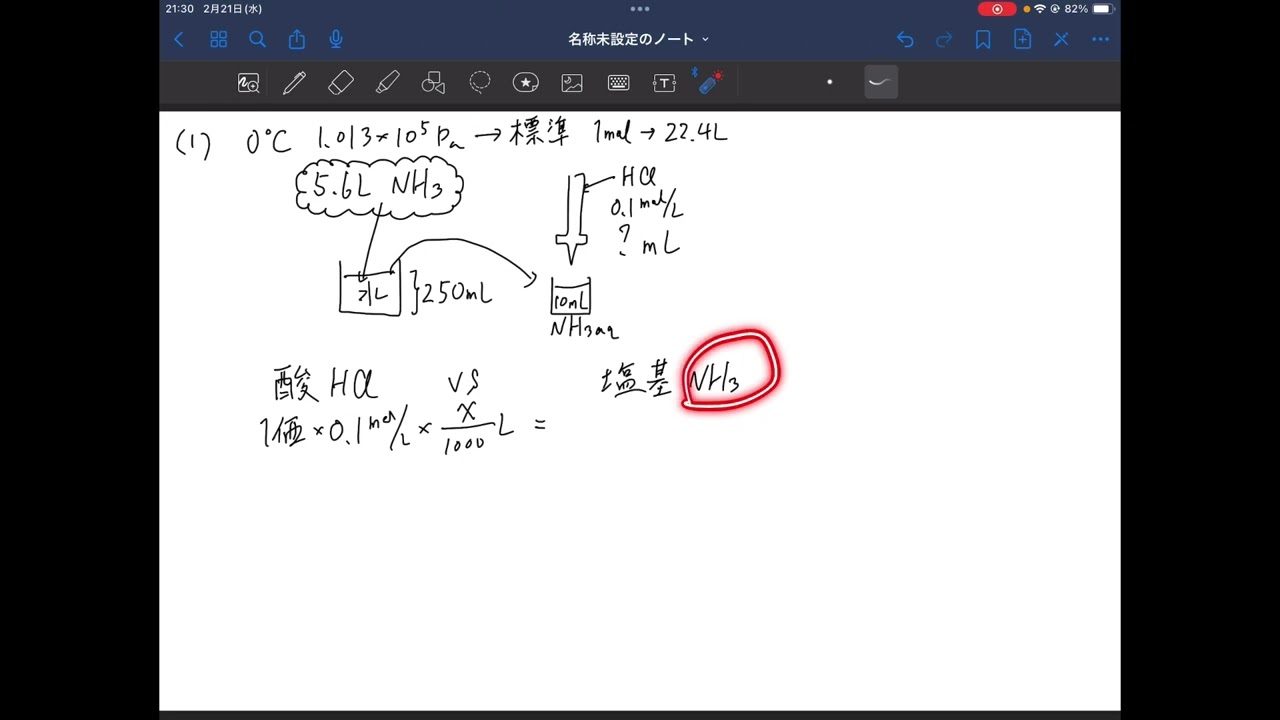 21:30 2月21日(水)
82%
名称未設定のノート
(1) 0℃ 1.013×10⁵Pa → 標準 1mol → 22.4L
5.6L NH₃
HCl
0.1mol/L
? mL
水
250mL
10mL
NH₃aq
酸 HCl VS 塩基 NH₃
1価×0.1mol/L×x/1000L=